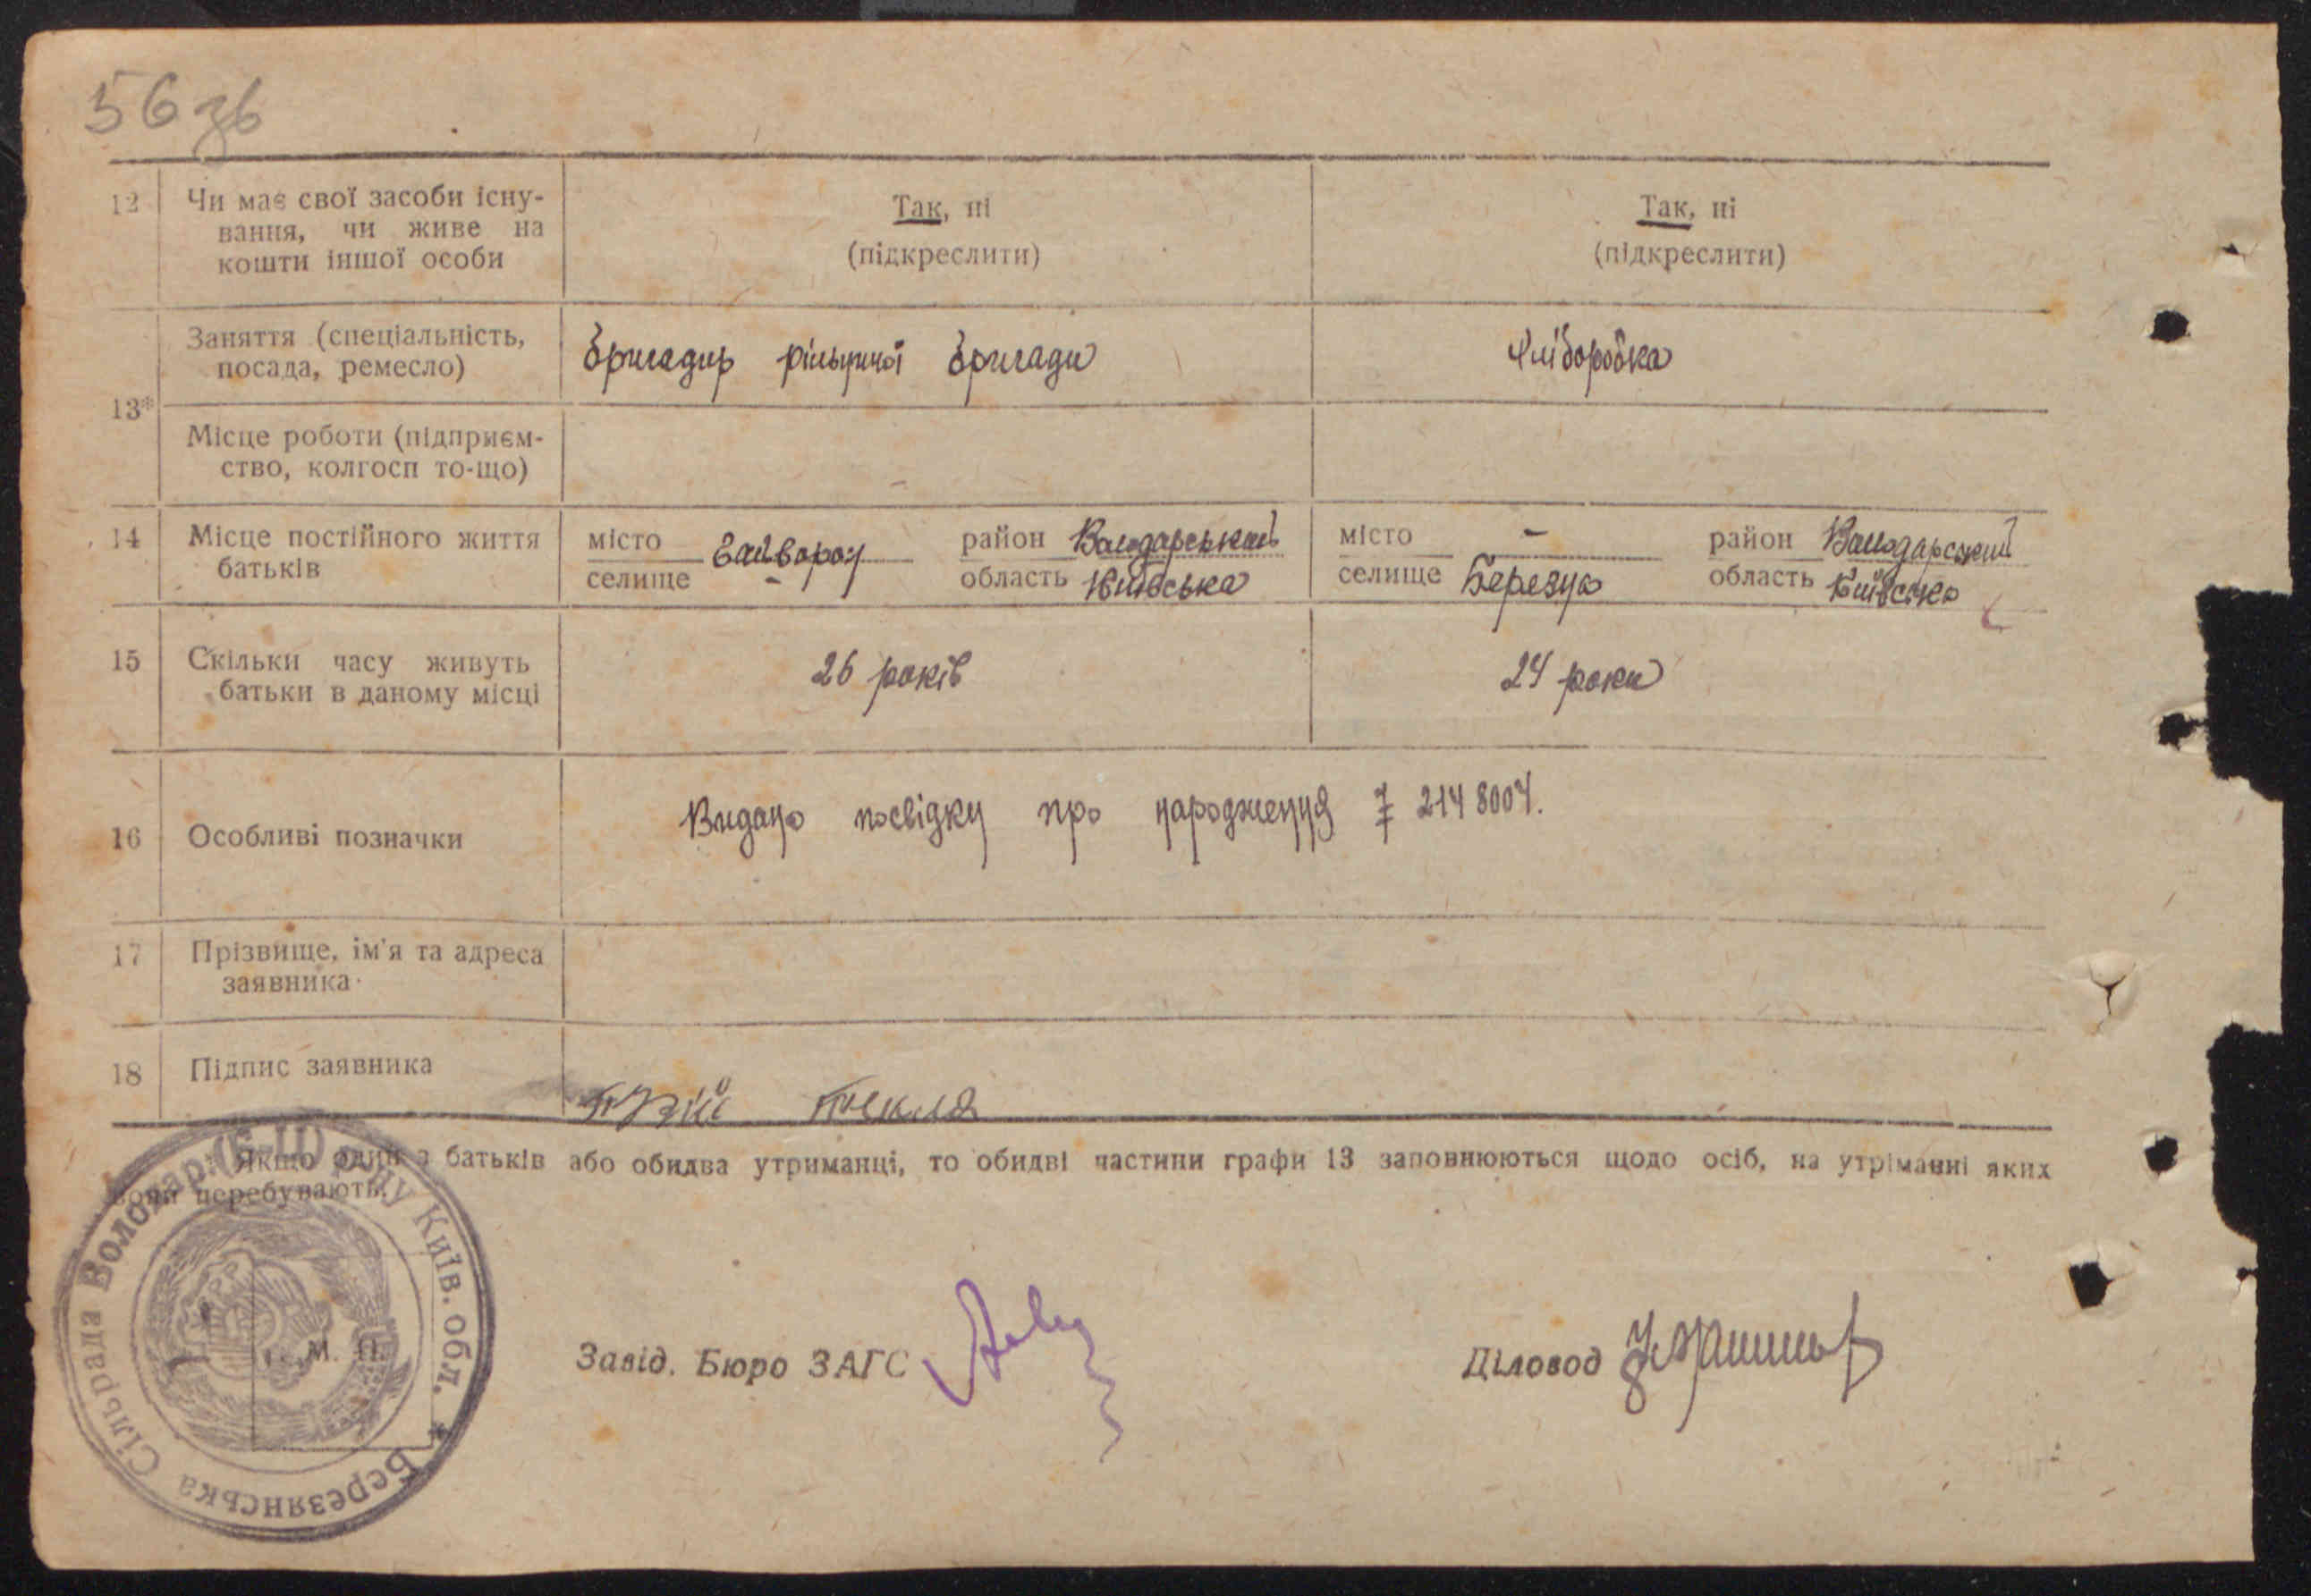 56 зв
12 Чи має свої засоби існу- Так, ні Так, ні
вання, чи живе на
кошти іншої особи (підкреслити) (підкреслити)
Заняття (спеціальність,
посада, ремесло) Бригадир рільничої бригади Хліборобка
13*
Місце роботи (підприєм-
ство, колгосп то-що)
14 Місце постійного життя місто Гайворон район Володарський місто - район Володарський
батьків селище - область Київська селище Березна область Київська
15 Скільки часу живуть 26 років 24 роки
батьки в даному місці
Видано посвідку про народження № 2148004.
16 Особливі позначки
17 Прізвище, ім'я та адреса
заявника
18 Підпис заявника
Текля
* Якщо один з батьків або обидва утриманці, то обидві частини графи 13 заповнюються щодо осіб, на утріманні яких
вони перебувають.
Березянська Сільрада Володар. (Б-Ц) р-ну Київ. обл. *
М. П.
Завід. Бюро ЗАГС Діловод